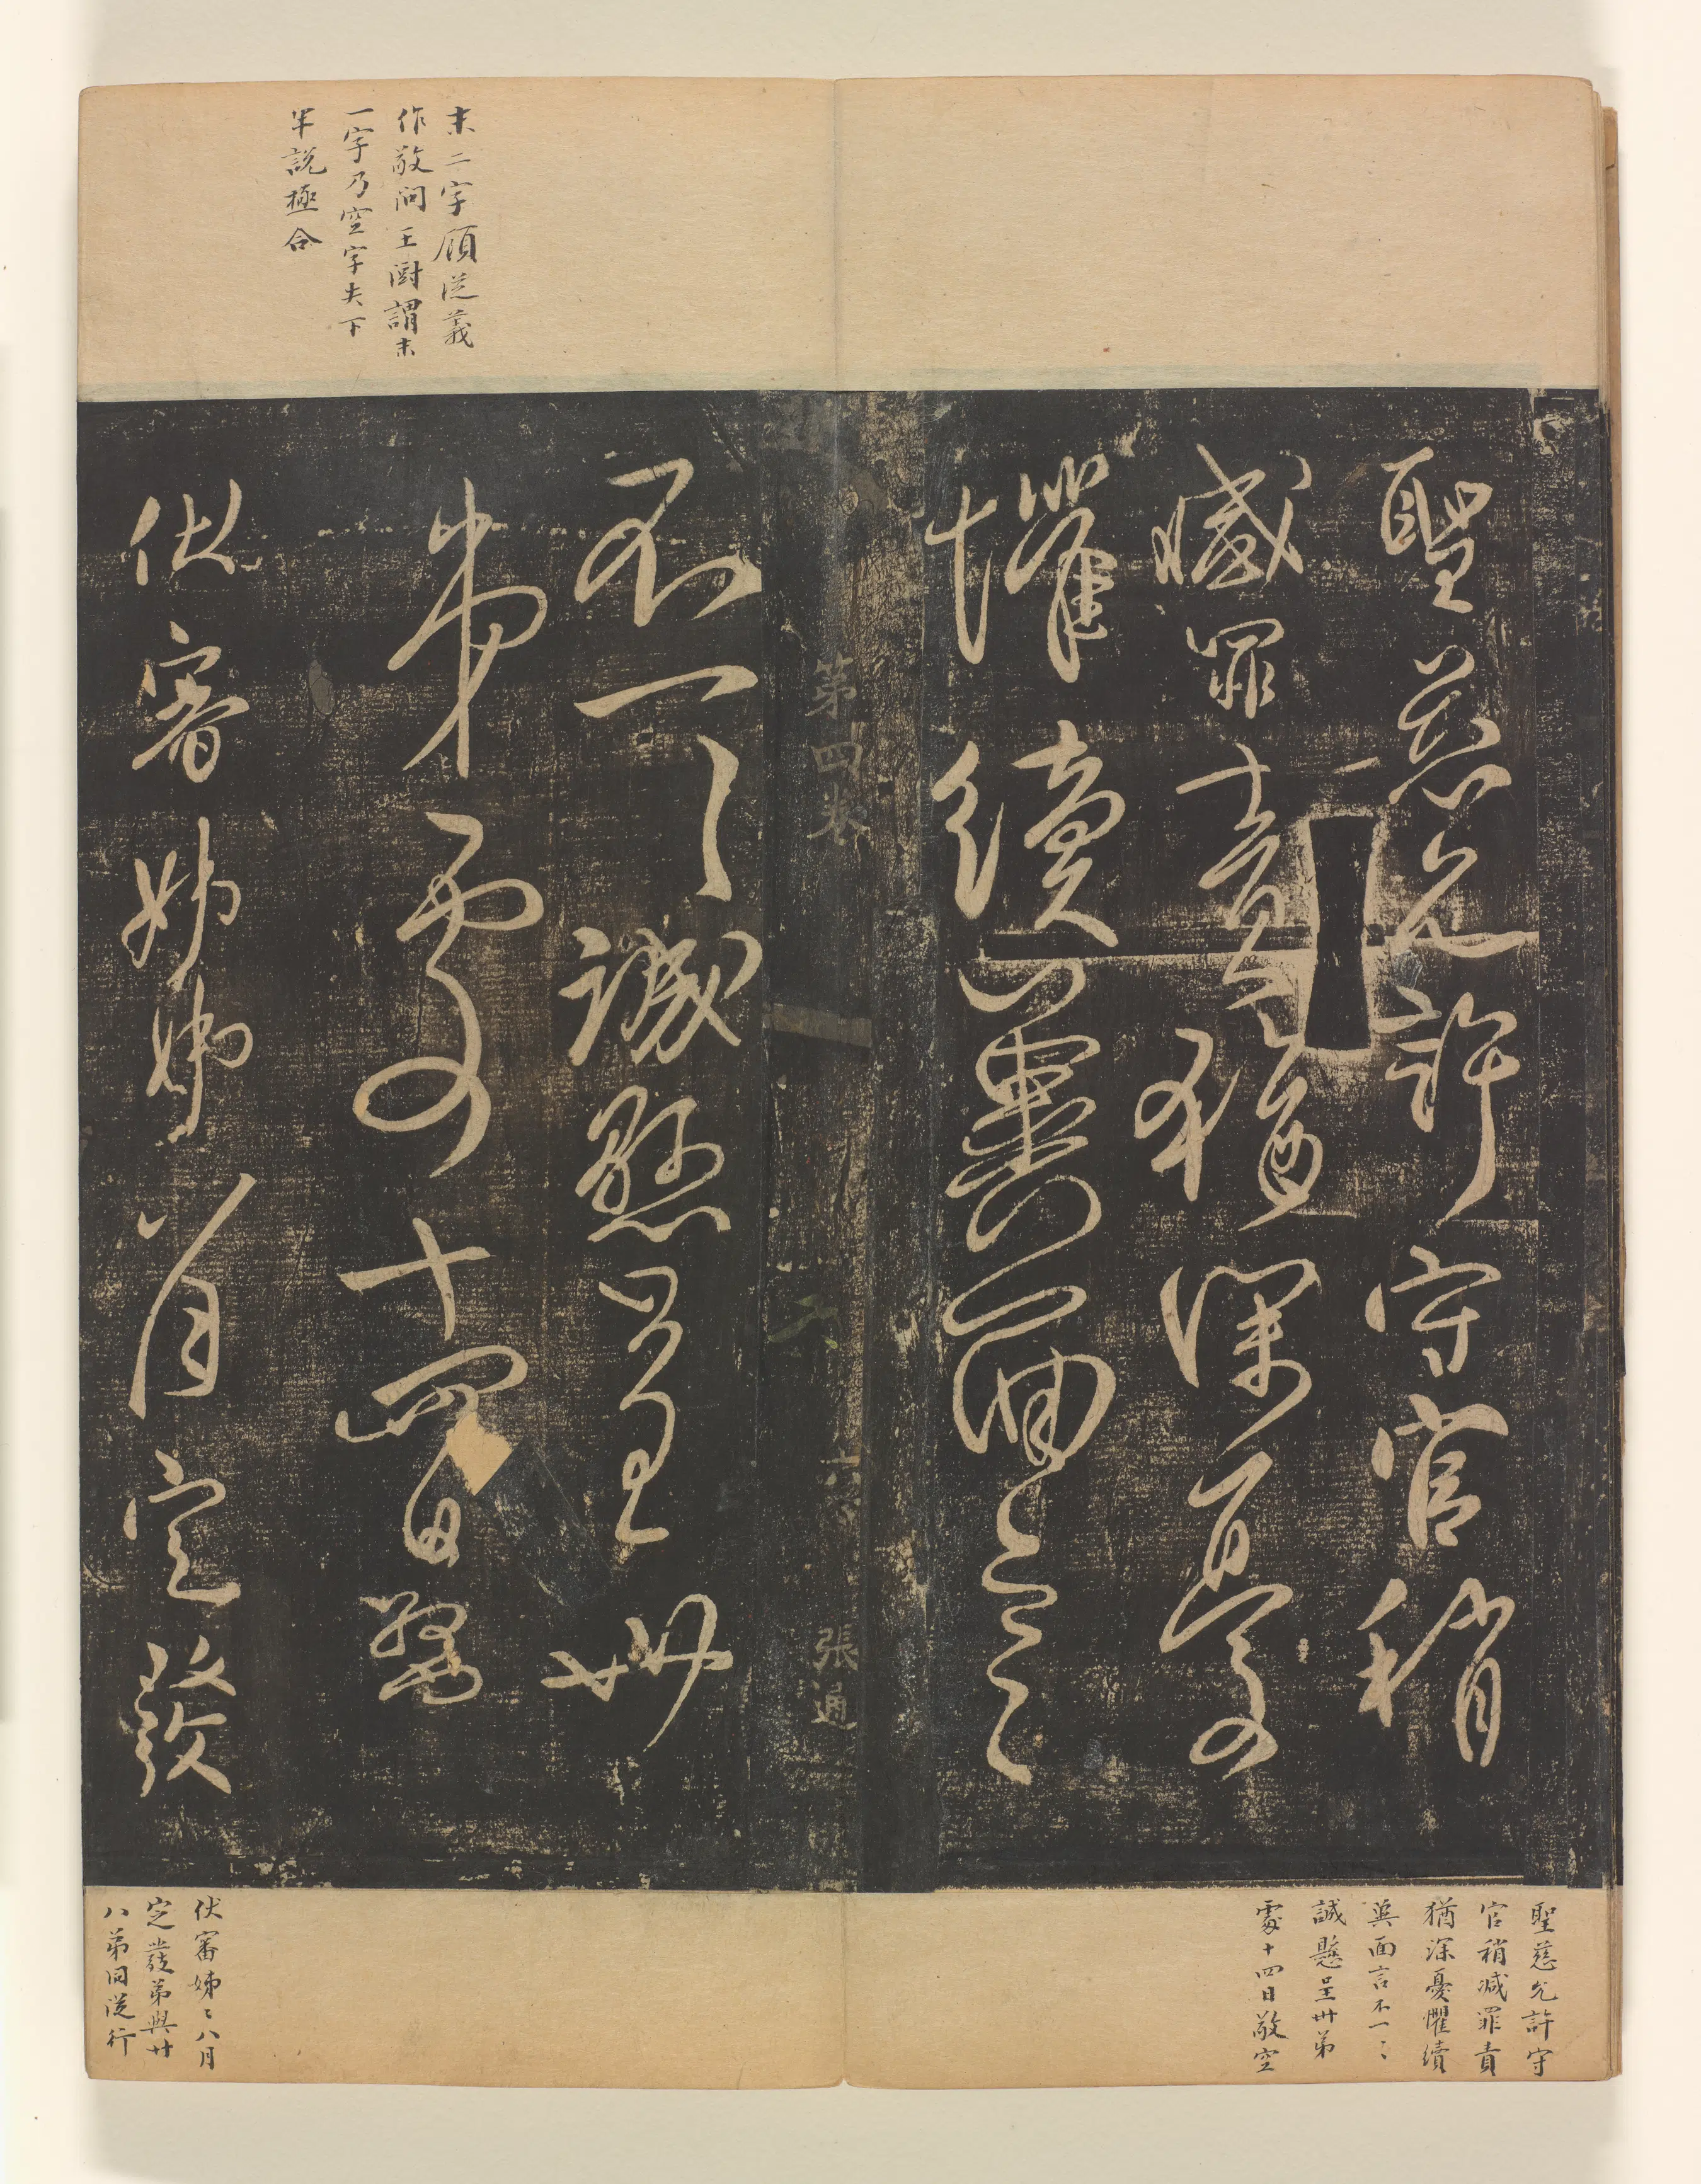 末二字顧從義
作敬問王澍謂末
一字乃空字失下
半說極合
聖慈允許守官稍
減罪責猶深憂
懼續冀面言
第四卷 六 張通
不一一誠懸呈卅
弟處十四日敬空
伏審姊姊八月定發
聖慈允許守
官稍減罪責
猶深憂懼續
冀面言不一〻
誠懸呈卅弟
處十四日敬空
伏審姊〻八月
定發弟與廿
八弟同從行